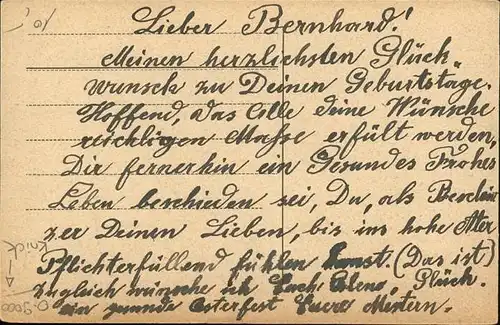 Lieber Bernhard!
Meinen herzlichsten Glück-
wunsch zu Deinen Geburtstage.
Hoffend, das Alle deine Wünsche
reichligen Masse erfült werden,
Dir fernerhin ein Gesundes Frohes
Leben beschieden sei, Du, als
zer Deinen Lieben, bis ins hohe Alter
Pflichterfüllend fühlen (Das ist)
Zugleich wünsche ich Glück.
ein gesunde Osterfest
Knick